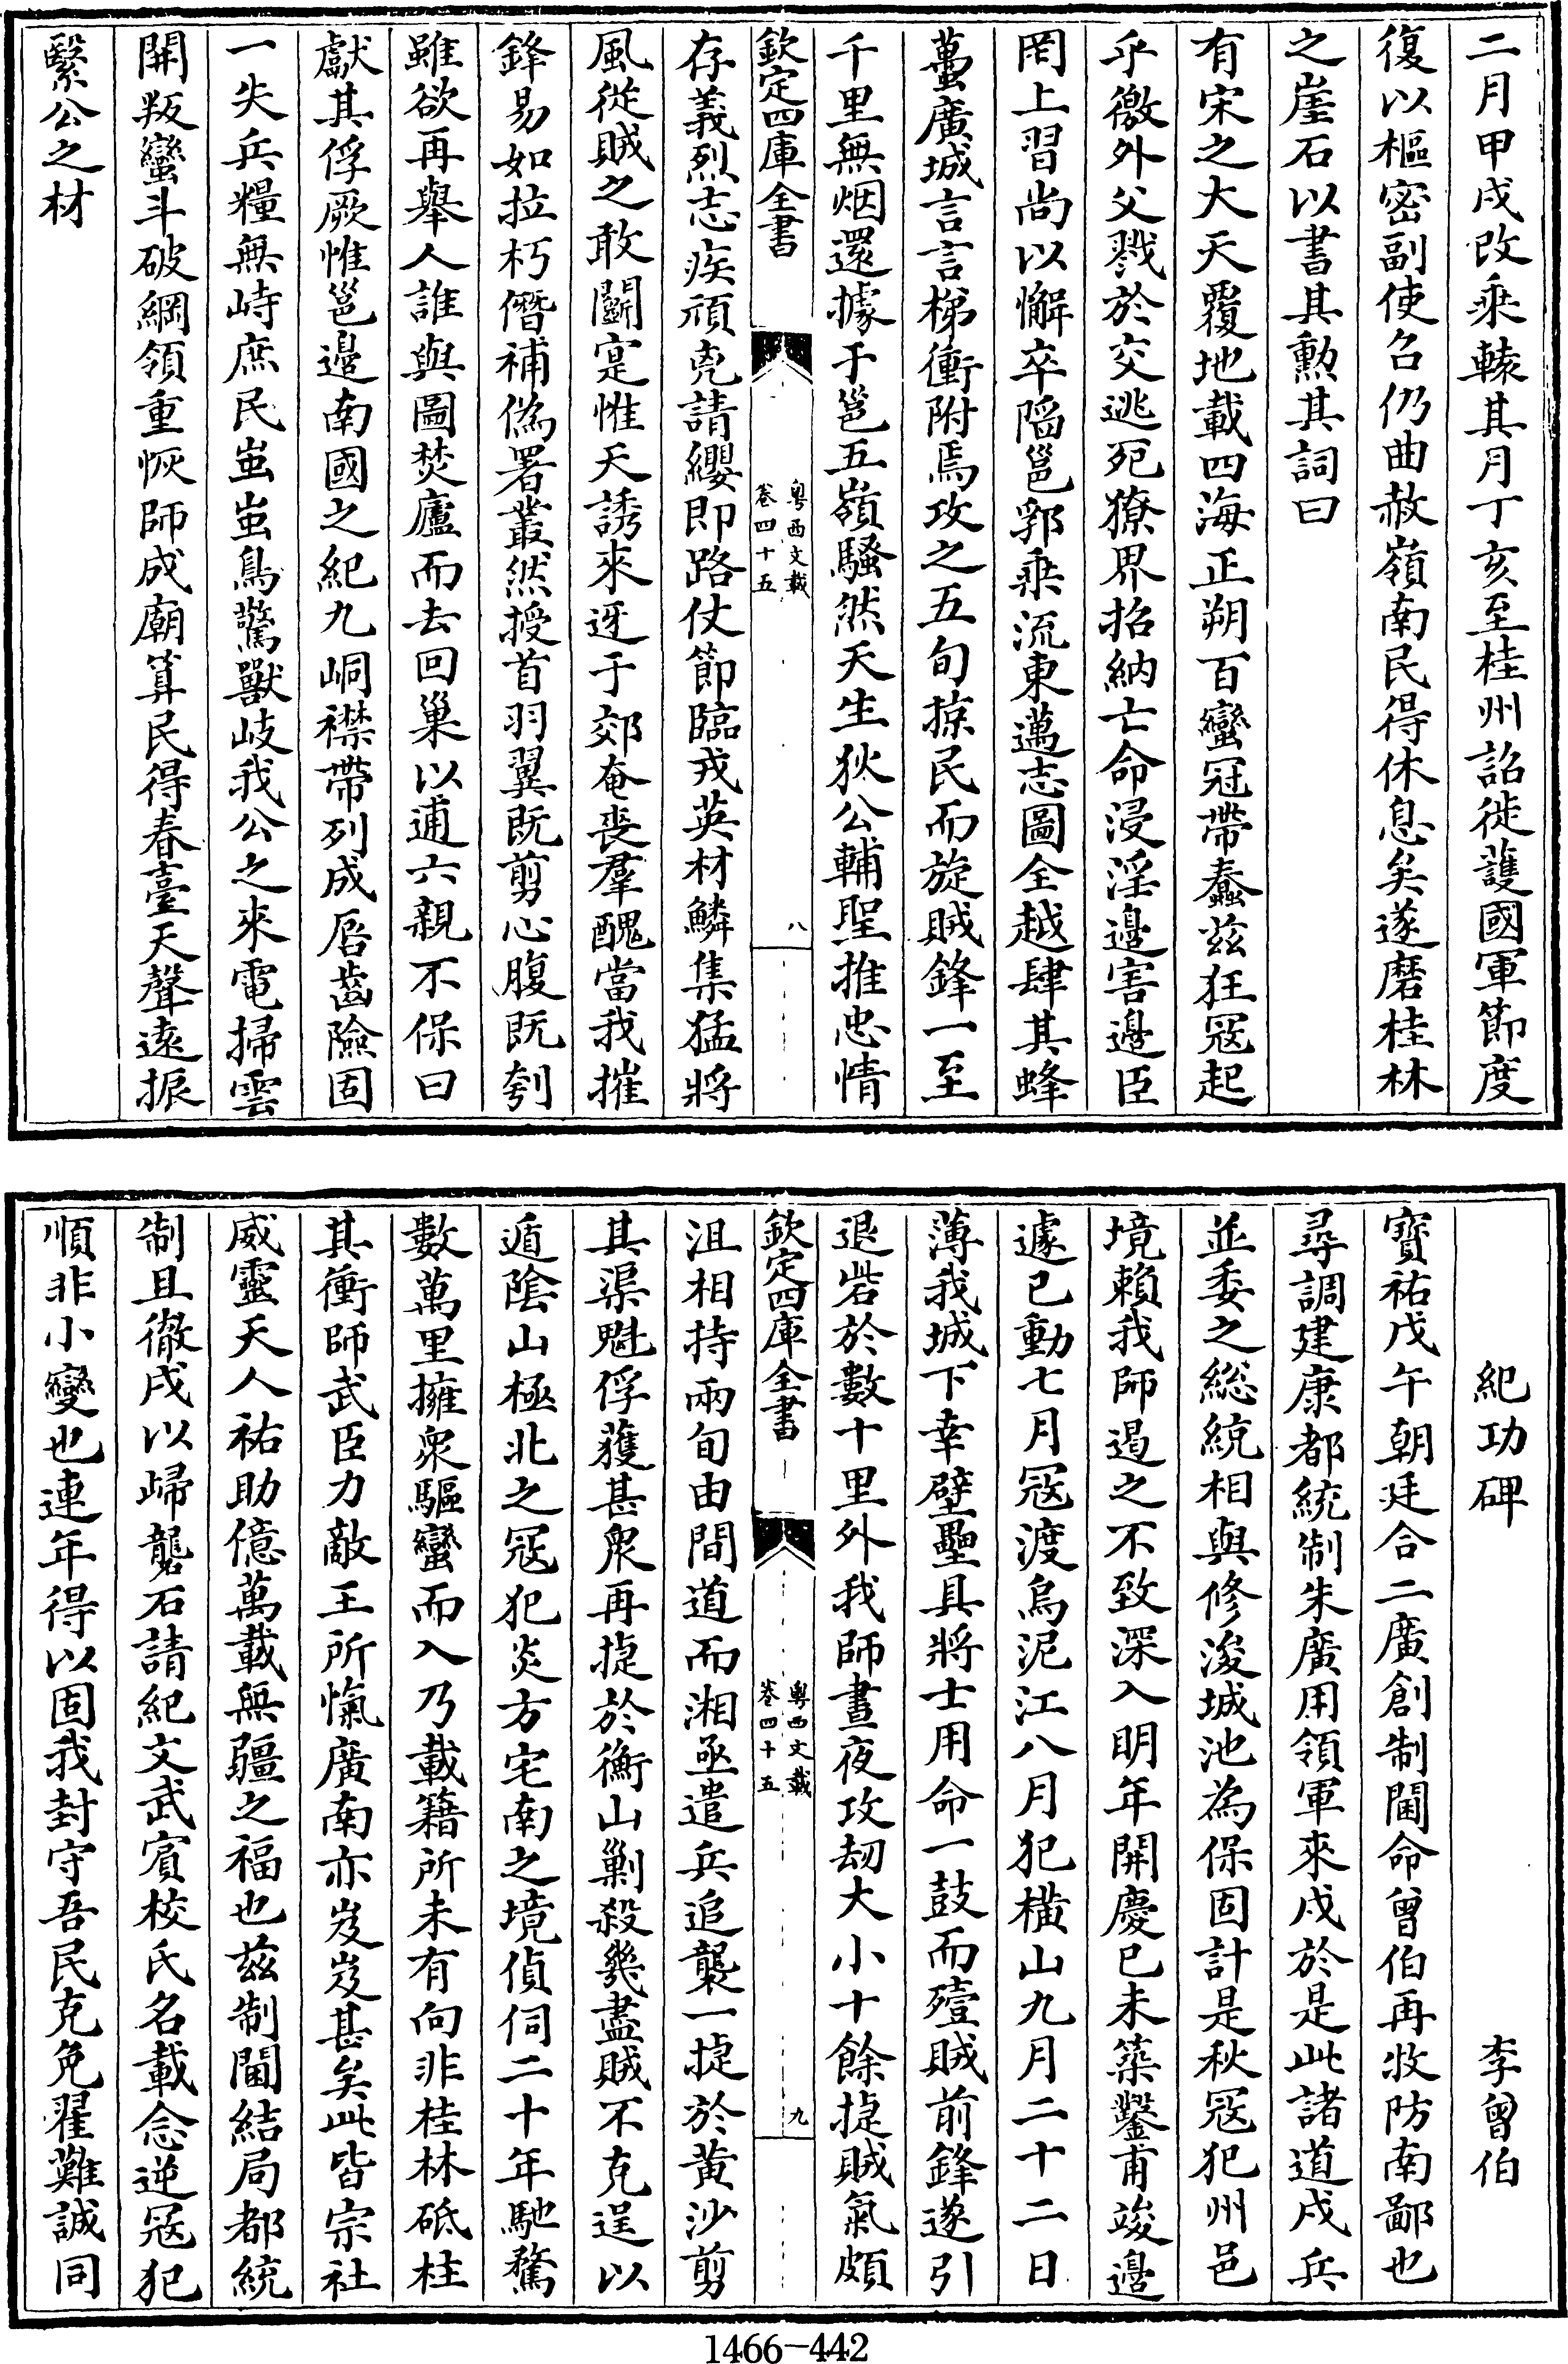 二月甲戌改乘轅其月丁亥至桂州詔徙護國軍節度
復以樞密副使召仍曲赦嶺南民得休息矣遂磨桂林
之崖石以書其勲其詞曰
有宋之大天覆地載四海正朔百蠻冠帶蠢兹狂冦起
乎徼外父戮於交逃死獠界招納亡命浸淫邉害邉臣
罔上習尚以懈卒陷邕郛乘流東邁志圖全越肆其蜂
蠆廣城言言梯衝附焉攻之五旬掠民而旋賊鋒一至
千里無烟還據于邕五嶺騷然天生狄公輔聖推忠情
欽定四庫全書
粤西文載
卷四十五
八
存義烈志疾頑兇請纓即路仗節臨戎英材鱗集猛將
風從賊之敢鬭寔惟天誘來迓于郊奄喪羣醜當我摧
鋒易如拉朽僭補偽署叢然授首羽翼既剪心腹既刳
雖欲再舉人誰與圖焚廬而去回巢以逋六親不保曰
獻其俘厥惟邕邉南國之紀九峒襟帶列成唇齒險固
一失兵糧無峙庶民蚩蚩鳥驚獸岐我公之來電掃雲
開叛蠻斗破綱領重恢師成廟算民得春臺天聲遠振
繄公之材
紀功碑
李曾伯
寳祐戊午朝廷合二廣創制閫命曾伯再牧防南鄙也
尋調建康都統制朱廣用領軍來戍於是此諸道戍兵
並委之総統相與修浚城池為保固計是秋冦犯州邑
境賴我師遏之不致深入明年開慶已未築鑿甫竣邉
遽已動七月冦渡烏泥江八月犯橫山九月二十二日
薄我城下幸壁壘具將士用命一鼓而殪賊前鋒遂引
退砦於數十里外我師晝夜攻刼大小十餘捷賊氣頗
欽定四庫全書
粤西文載
卷四十五
九
沮相持兩旬由間道而湘亟遣兵追襲一捷於黄沙剪
其渠魁俘獲甚衆再捷於衡山剿殺幾盡賊不克逞以
遁陰山極北之冦犯炎方宅南之境偵伺二十年馳騖
數萬里擁衆驅蠻而入乃載籍所未有向非桂林砥柱
其衝師武臣力敵王所愾廣南亦岌岌甚矣此皆宗社
威靈天人祐助億萬載無疆之福也兹制閫結局都統
制且徹戍以歸礱石請紀文武賓校氏名載念逆冦犯
順非小變也連年得以固我封守吾民克免罹難誠同
1466-442